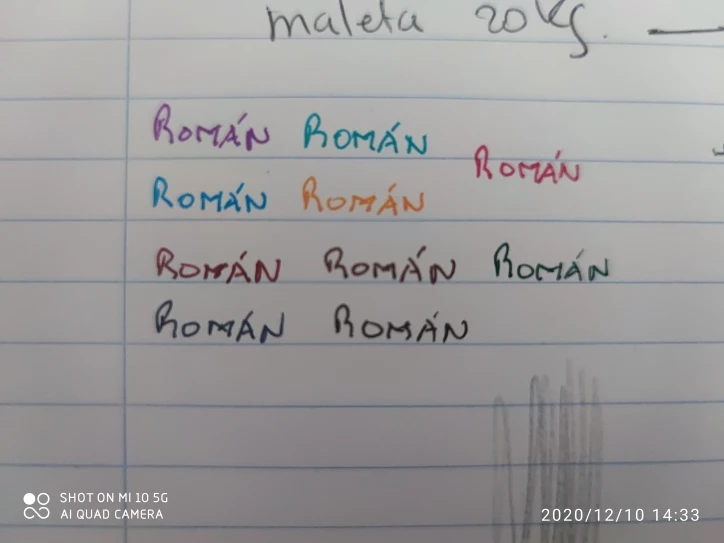 maleta 20 Kg.
ROMÁN ROMÁN
ROMÁN
ROMÁN ROMÁN
ROMÁN ROMÁN ROMÁN
ROMÁN ROMÁN
SHOT ON MI 10 5G
AI QUAD CAMERA
2020/12/10 14:33